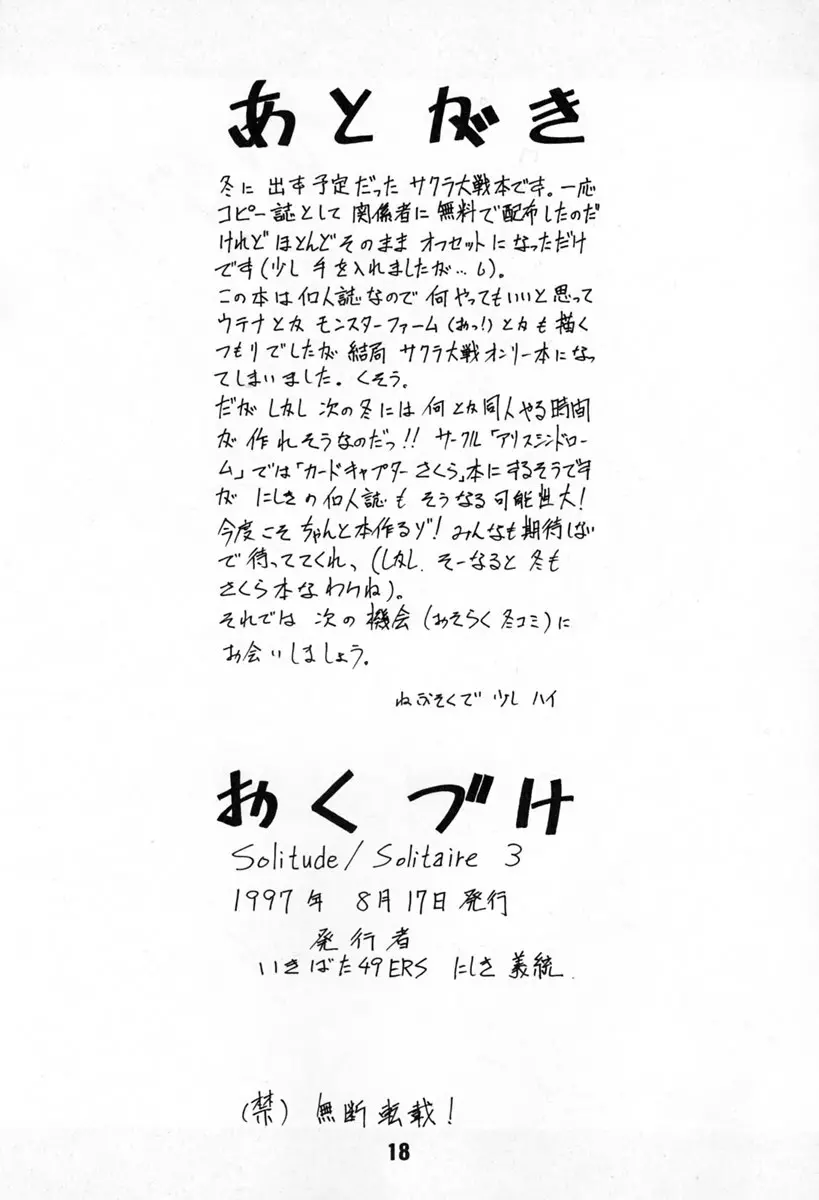 あとがき
冬に出す予定だったサクラ大戦本です。一応
コピー誌として関係者に無料で配布したのだ
けれどほとんどそのままオフセットになっただけ
です(少し手を入れましたが…)。
この本は個人誌なので何やってもいいと思って
ウテナとかモンスターファーム(おっ!)とかも描く
つもりでしたが結局サクラ大戦オンリー本になっ
てしまいました。くそう。
だがしかし次の冬には何とか同人やる時間
が作れそうなのだっ!!サークル「アリスシンドロー
ム」では「カードキャプターさくら」本にするそうです
がにしきの個人誌もそうなる可能性大!
今度こそちゃんと本作るゾ!みんなも期待しない
で待っててくれ、(しかし、そーなると冬も
さくら本なわけね)。
それでは次の機会(おそらく冬コミ)に
お会いしましょう。
ねぶそくで少しハイ
おくづけ
Solitude/Solitaire 3
1997年 8月17日発行
発行者
いきばた49ERS にしき義統
(禁)無断転載!
18